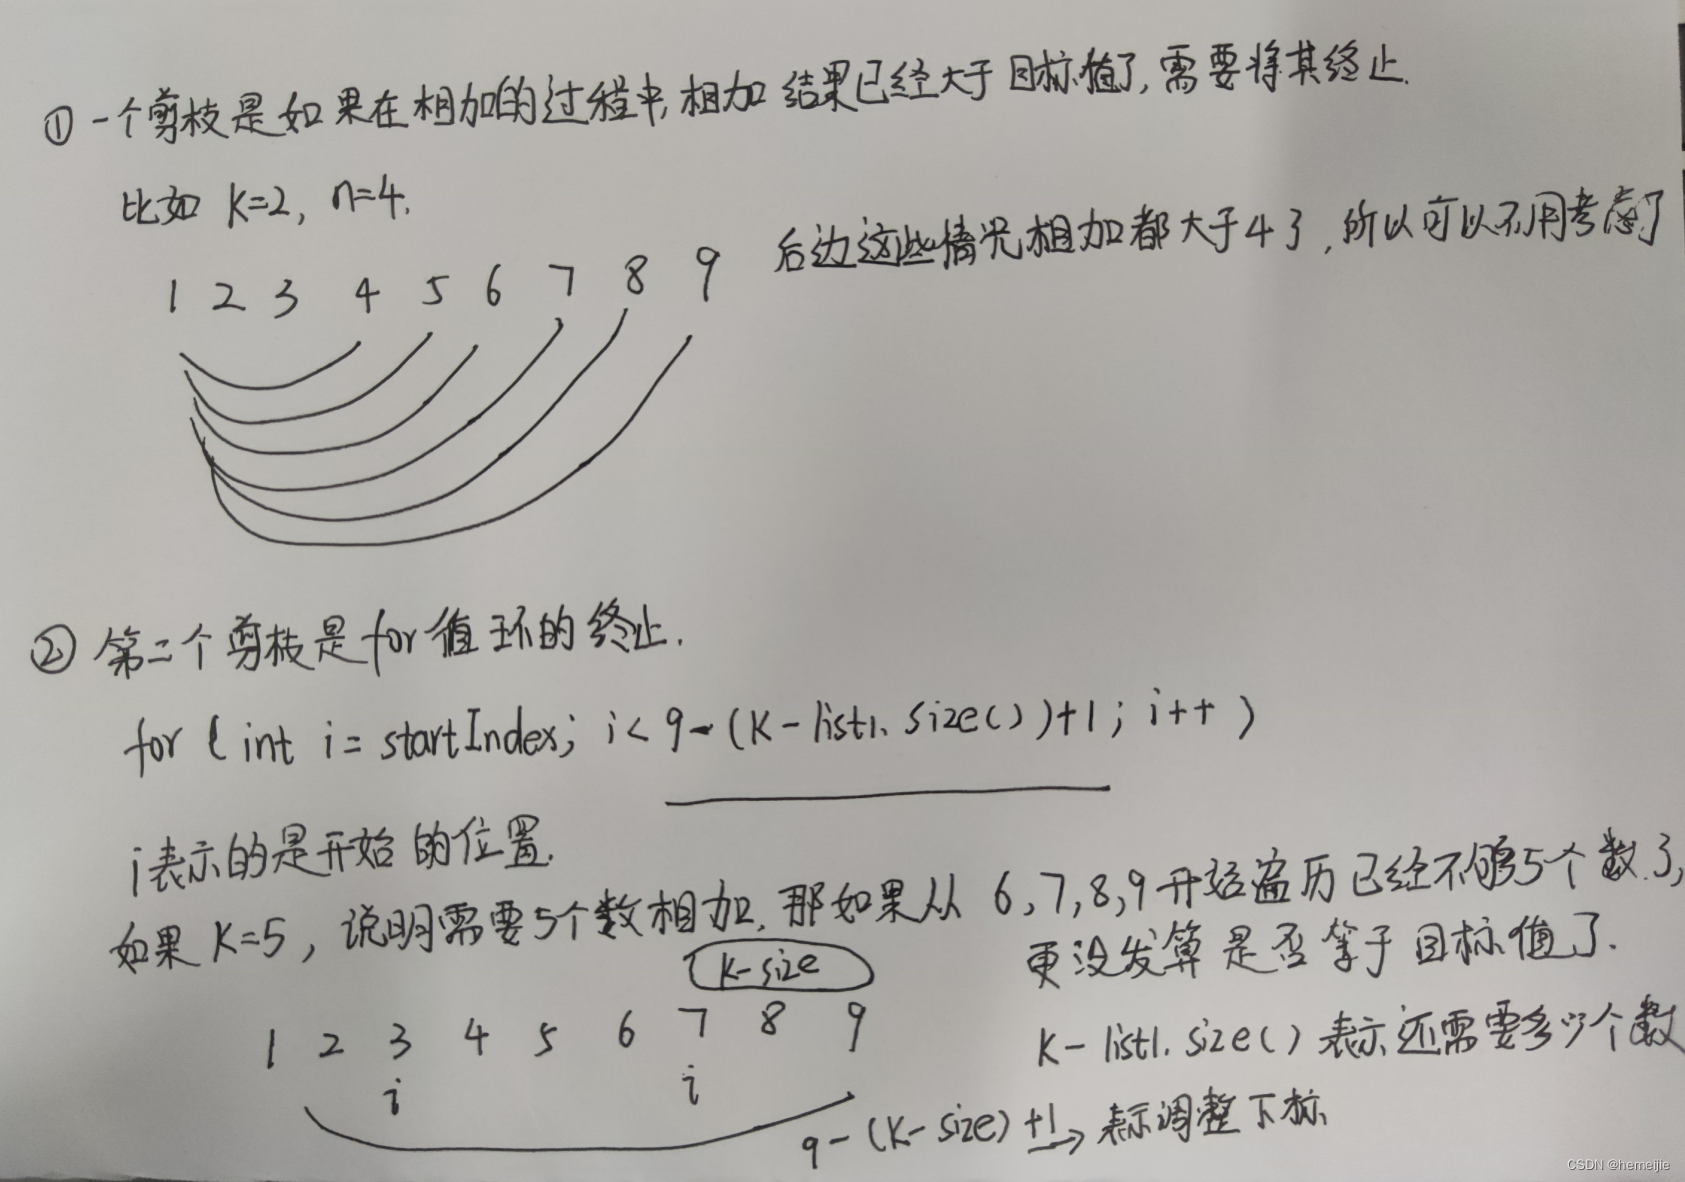 ① 一个剪枝是如果在相加的过程中,相加结果已经大于目标值了,需要将其终止.
比如 K=2, n=4.
后边这些情况相加都大于4了,所以可以不用考虑了
1 2 3 4 5 6 7 8 9
② 第二个剪枝是for值环的终止.
for (int i = startIndex; i < 9-(K-list1.size())+1; i++)
i表示的是开始的位置.
如果K=5,说明需要5个数相加,那如果从6,7,8,9开始遍历已经不够5个数了,
更没发算是否等于目标值了.
K-size
1 2 3 4 5 6 7 8 9
i i
K-list1.size()表示还需要多少个数
9-(K-size)+1→表示调整下标
CSDN @hemeijie